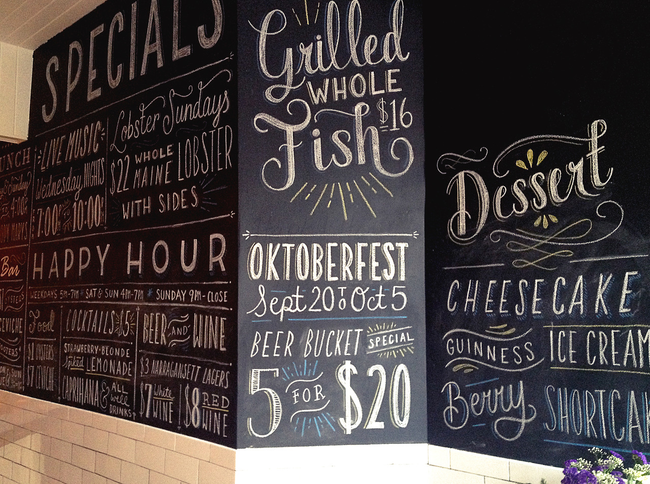 SPECIALS
LIVE MUSIC
Wednesday NIGHTS
7:00 10:00
Lobster Sundays
$22 WHOLE MAINE LOBSTER
WITH SIDES
HAPPY HOUR
WEEKDAYS 5PM-7PM SAT & SUN 4PM-7PM SUNDAY 9PM-CLOSE
Bar
Food
COCKTAILS $5
STRAWBERRY-BLONDE
LEMONADE
CAIPIRIHANA & ALL Well DRINKS
BEER AND WINE
$3 NARRAGANSETT LAGERS
$7 White WINE $8 RED WINE
Grilled
WHOLE
Fish $16
OKTOBERFEST
Sept 20 TO Oct 5
BEER BUCKET SPECIAL
5 FOR $20
Dessert
CHEESECAKE
GUINNESS ICE CREAM
Berry SHORTCAK